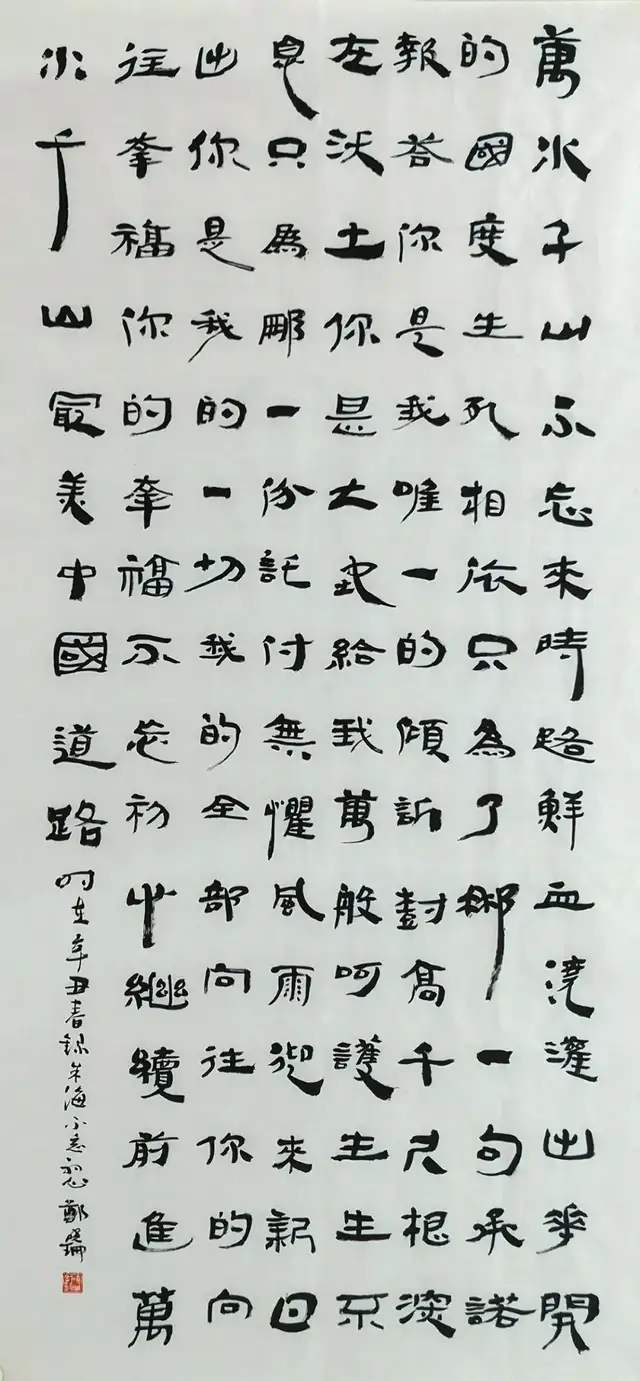 萬水千山不忘來時路鮮血澆灌出華開
的國度生死相依只為了那一句承諾
報答你是我唯一的傾訴樹高千尺根深
在沃土你是大地給我萬般呵護生生不
息只為那一份託付無懼風雨迎來新日
出你是我的一切我的全部向往你的向
往幸福你的幸福不忘初心繼續前進萬
水千山最美中國道路 时在辛丑春録朱海不忘初心 鄭